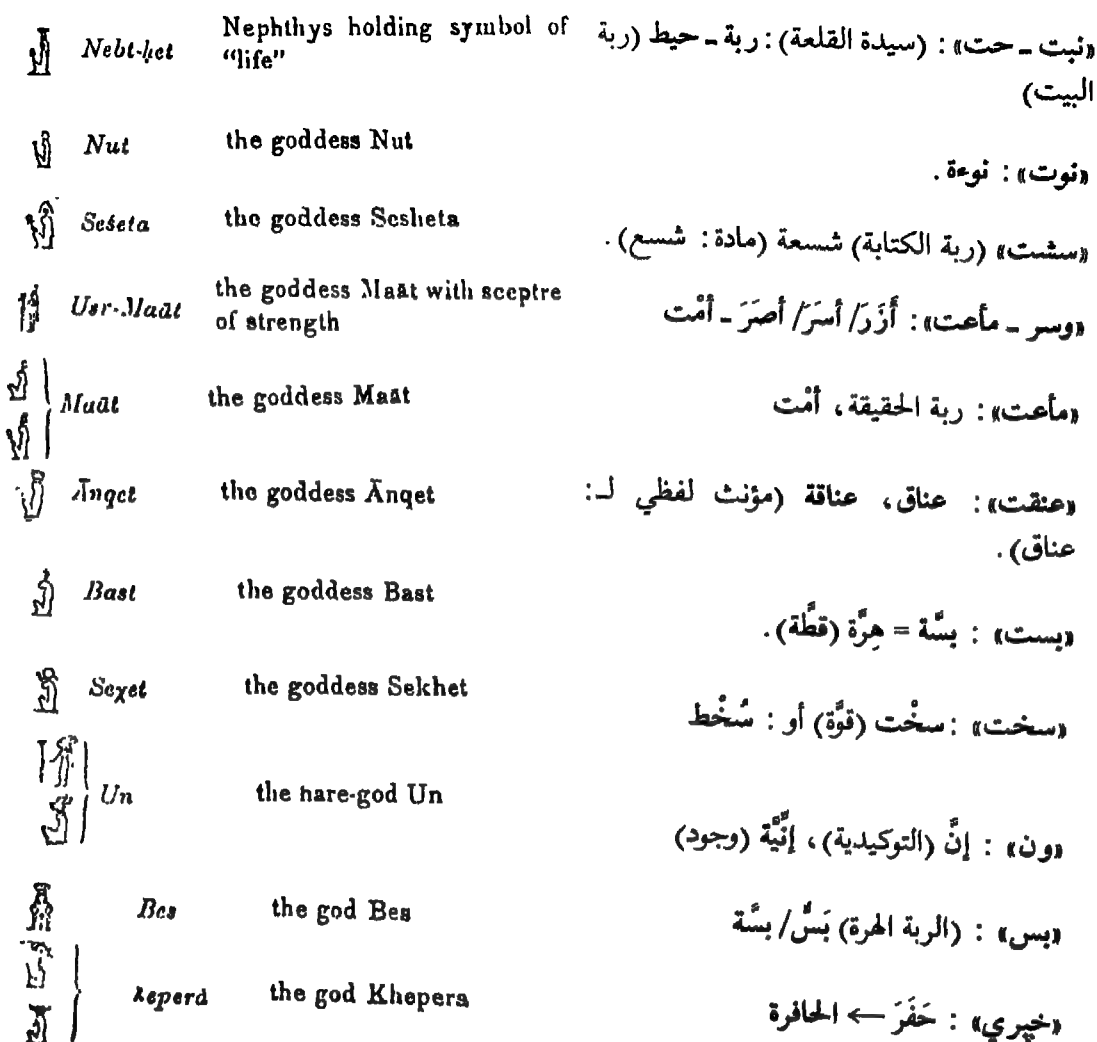 Nebt-ḥet Nephthys holding symbol of «نبت ـ حت» : (سيدة القلعة) : ربة ـ حيط (ربة
“life” البيت)
Nut the goddess Nut «نوت» : نوءة .
Sešeta the goddess Sesheta «سشت» (ربة الكتابة) شسعة (مادة : شسع) .
Usr-Maāt the goddess Maāt with sceptre «وسر ـ مأعت» : أَزَرَ/ أسَرَ/ أصَرَ ـ أمْت
of strength
Maāt the goddess Maāt «مأعت» : ربة الحقيقة، أمْت
Ānqet the goddess Ānqet «عنقت» : عناق، عناقة (مؤنث لفظي لـ :
عناق) .
Bast the goddess Bast «بست» : بسَّة = هِرَّة (قطَّة) .
Seχet the goddess Sekhet «سخت» : سخْت (قوَّة) أو : سُخْط
Un the hare-god Un «ون» : إنَّ (التوكيدية)، إنِّيَّة (وجود)
Bes the god Bes «بس» : (الربة الهرة) بَسٌّ/ بسَّة
the god Khepera «خپري» : حَفَرَ ← الحافرة